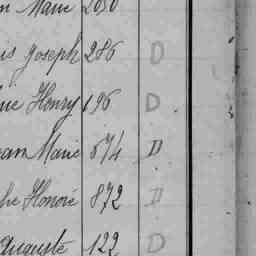 Marie 2050
Joseph 286 D
Henry 196 D
Marie 674 D
Honoré 872 D
Auguste 122 D